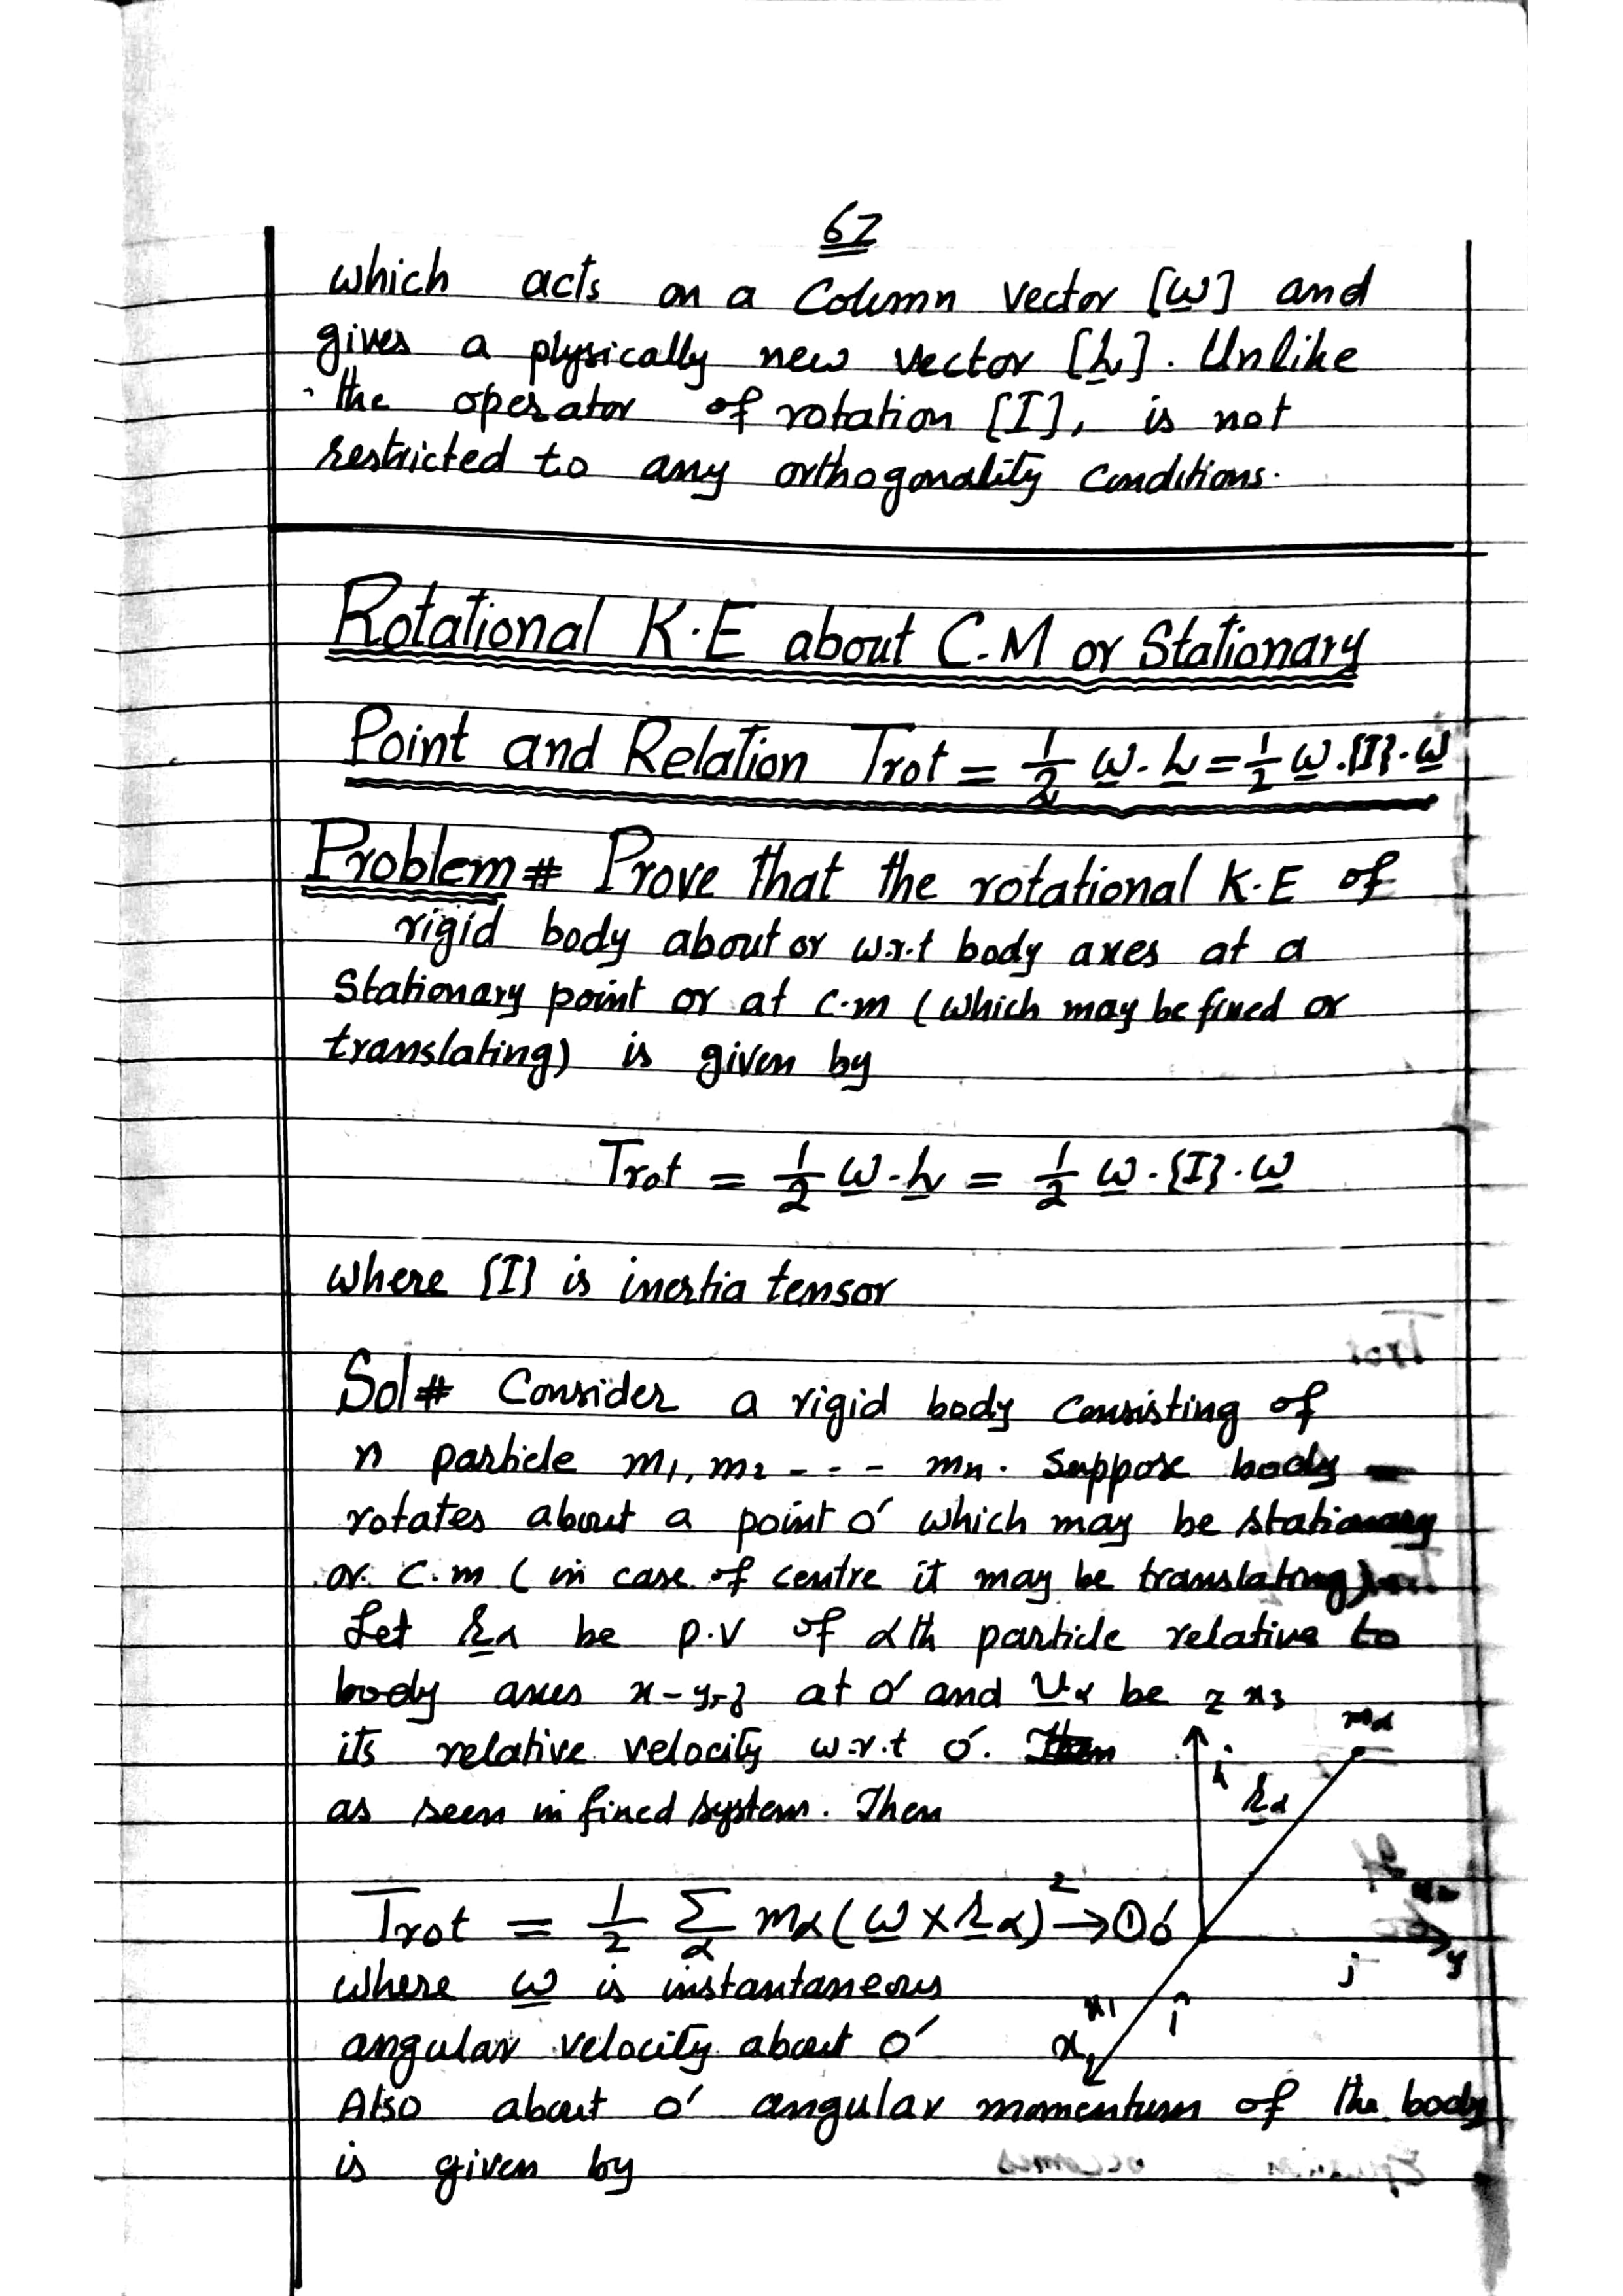 67
which acts on a Column vector [ω] and
gives a physically new vector [L]. Unlike
the operator of rotation [I], is not
restricted to any orthogonality conditions.
Rotational K.E about C.M or Stationary
Point and Relation Trot = 1/2 ω.L = 1/2 ω.{I}.ω
Problem# Prove that the rotational K.E of
rigid body about or w.r.t body axes at a
Stationary point or at c.m (which may be fixed or
translating) is given by
Trot = 1/2 ω.L = 1/2 ω.{I}.ω
where {I} is inertia tensor
Sol# Consider a rigid body consisting of
n particle m1, m2 - - - mn. Suppose body
rotates about a point o' which may be stationary
or c.m (in case of centre it may be translating)
Let rα be p.v of αth particle relative to
body axes x-y-z at o' and vα be
its relative velocity w.r.t o'.
as seen in fixed system. Then
z x3
mα
k
rα
Trot = 1/2 Σα mα(ω×rα)² → ①
o'
y
j
where ω is instantaneous
x1
i
angular velocity about o'
x
Also about o' angular momentum of the body
is given by